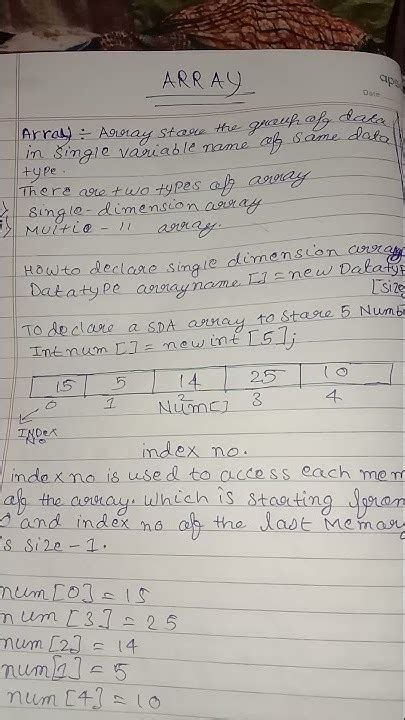 ARRAY
Date
Array :- Array store the group of data
in single variable name of same data
type.
There are two types of array
single-dimension array
Multie - 11 array.
How to declare single dimension array
Datatype arrayname [] = new Datatyp
[size
To declare a SDA array to store 5 Numb
Int num [] = new int [5];
15 5 14 25 10
0 1 2 3 4
Num[]
INDEX
NO
index no.
index no is used to access each mem
of the array. Which is starting from
0 and index no of the last Memory
is size-1.
num [0] = 15
num [3] = 25
num [2] = 14
num[1] = 5
num [4] = 10